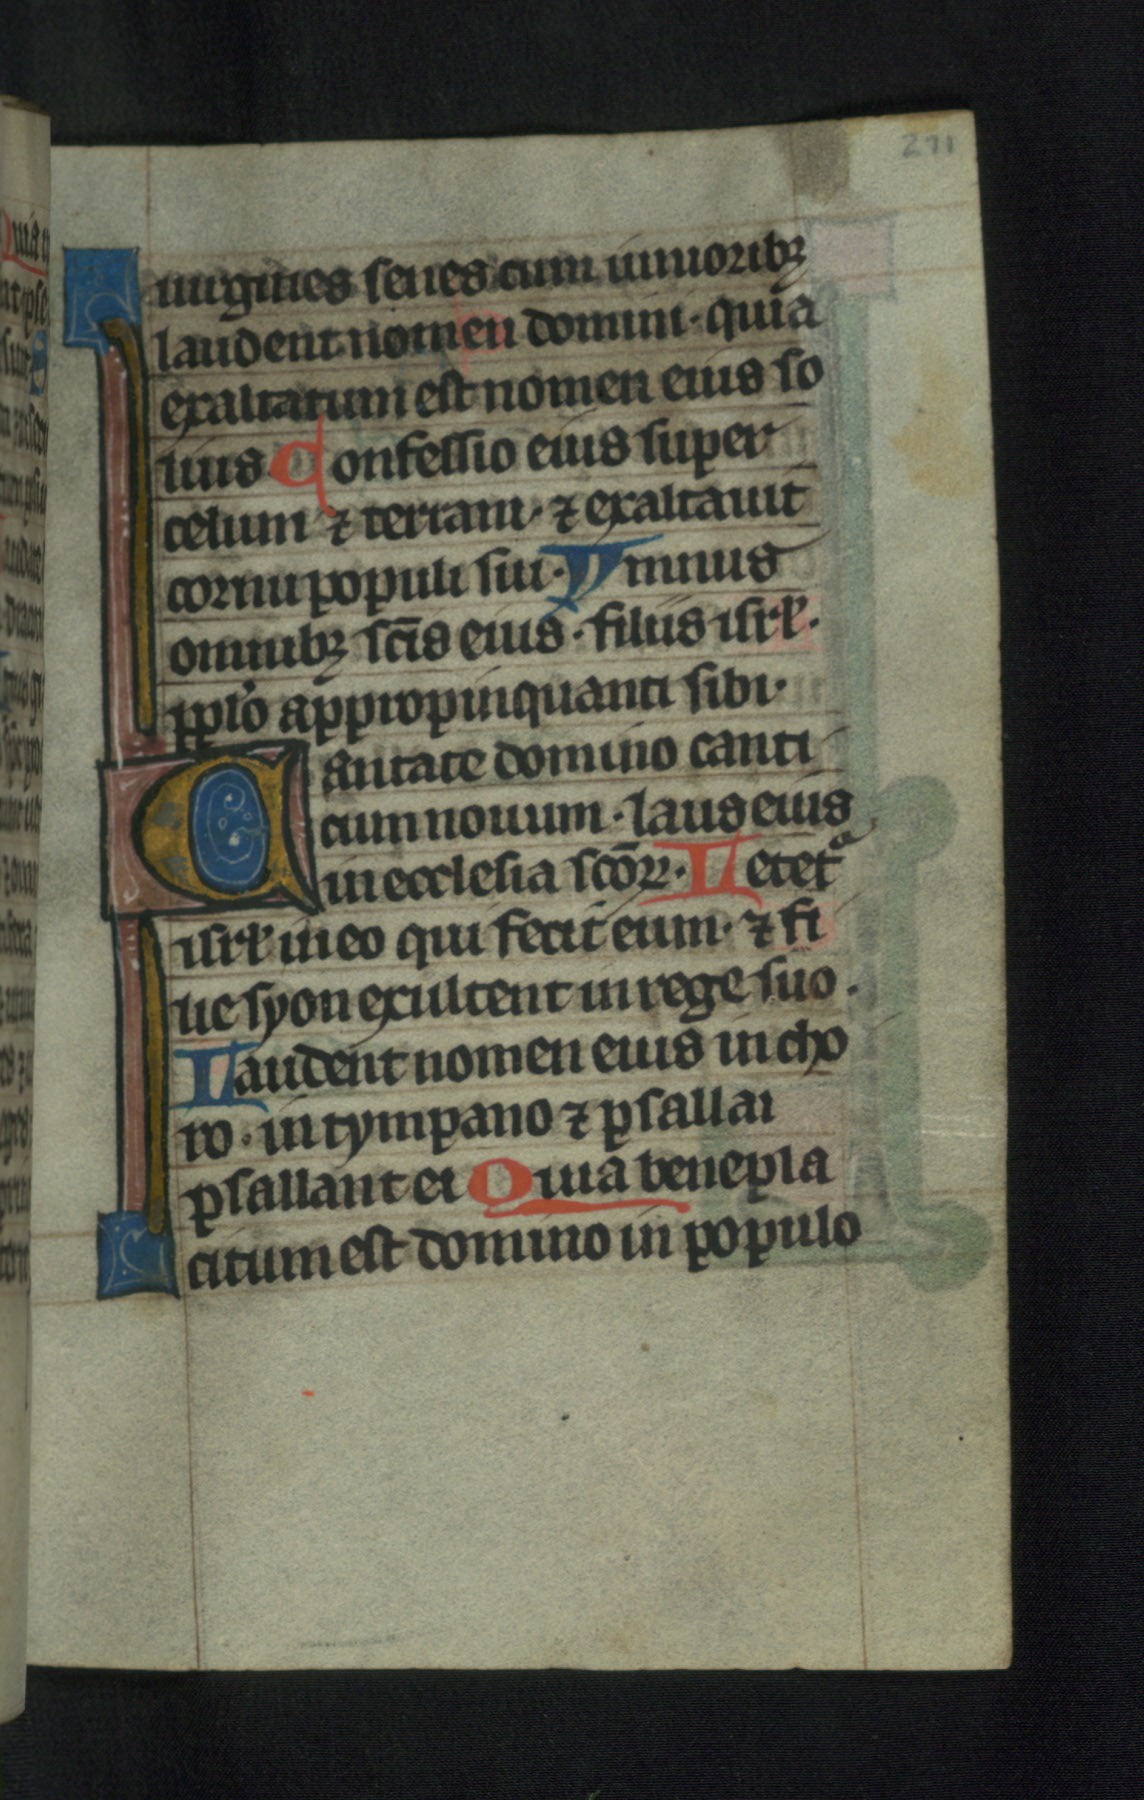 271
uirgines senes cum iunioribꝫ
laudent nomen domini · quia
exaltatum est nomen eius so
lius Confessio eius super
celum ⁊ terram · ⁊ exaltauit
cornu populi sui · Ymnus
omnibꝫ scīs eius · filiis isrl̓ ·
pplo̓ appropinquanti sibi ·
Cantate domino canti
cum nouum · laus eius
in ecclesia scōꝝ · Letetᵃ
isrl̓ in eo qui fecit eum · ⁊ fi
lie syon exultent in rege suo .
Laudent nomen eius in cho
ro · in tympano ⁊ psallai
psallant ei Quia benepla
citum est domino in populo